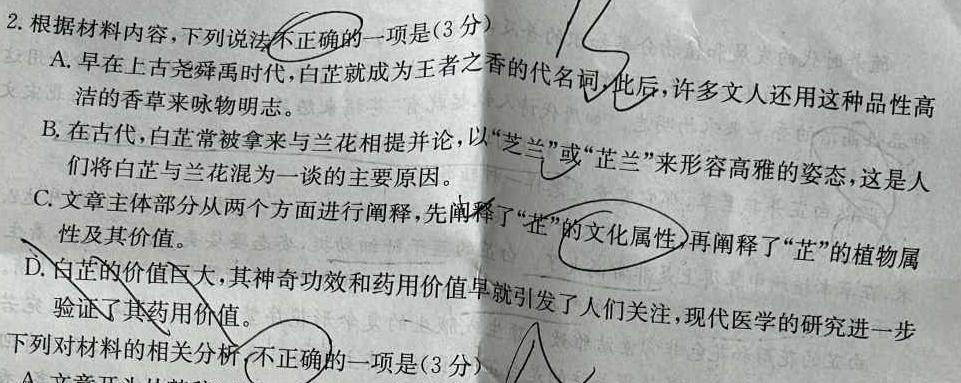 2. 根据材料内容,下列说法不正确的一项是(3分)
A. 早在上古尧舜禹时代,白芷就成为王者之香的代名词,此后,许多文人还用这种品性高
洁的香草来咏物明志。
B. 在古代,白芷常被拿来与兰花相提并论,以“芝兰”或“芷兰”来形容高雅的姿态,这是人
们将白芷与兰花混为一谈的主要原因。
C. 文章主体部分从两个方面进行阐释,先阐释了“芷”的文化属性,再阐释了“芷”的植物属
性及其价值。
D. 白芷的价值巨大,其神奇功效和药用价值早就引发了人们关注,现代医学的研究进一步
验证了其药用价值。
下列对材料的相关分析,不正确的一项是(3分)